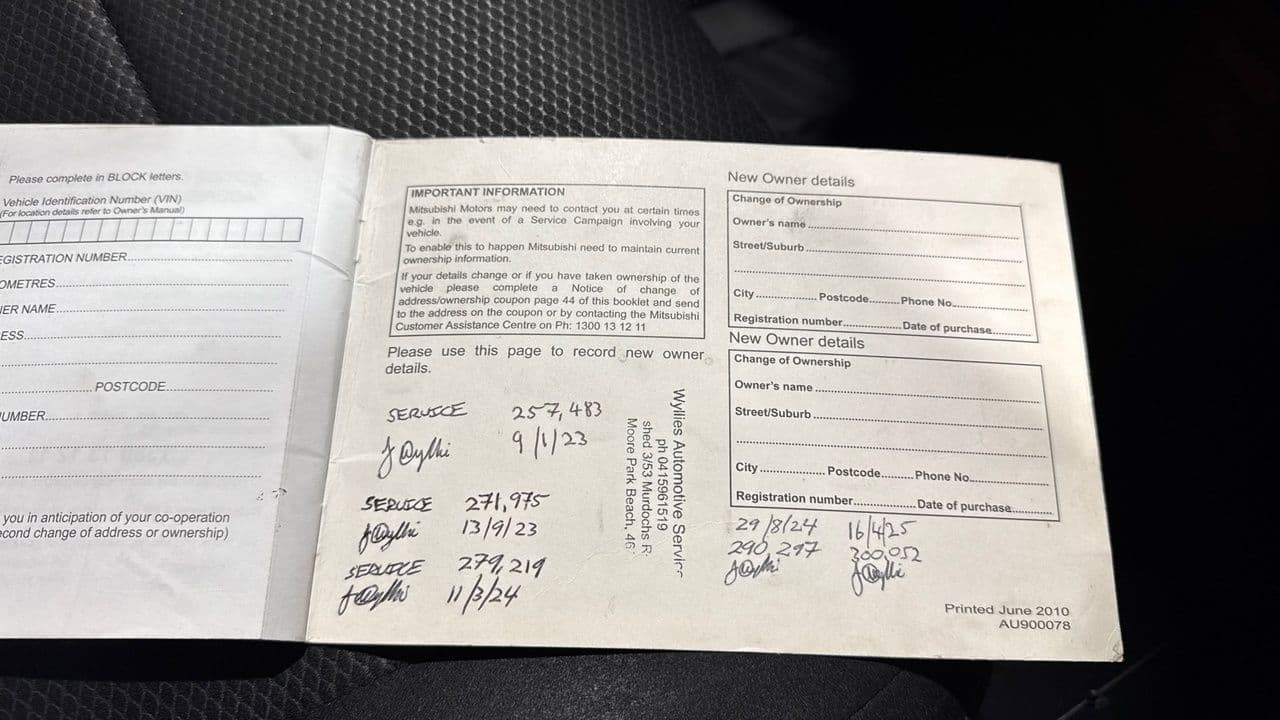 Please complete in BLOCK letters.
Vehicle Identification Number (VIN)
(For location details refer to Owner's Manual)
EGISTRATION NUMBER
OMETRES
ER NAME
ESS
POSTCODE
UMBER
you in anticipation of your co-operation
econd change of address or ownership)
IMPORTANT INFORMATION
Mitsubishi Motors may need to contact you at certain times
e.g. in the event of a Service Campaign involving your
vehicle.
To enable this to happen Mitsubishi need to maintain current
ownership information.
If your details change or if you have taken ownership of the
vehicle please complete a Notice of change of
address/ownership coupon page 44 of this booklet and send
to the address on the coupon or by contacting the Mitsubishi
Customer Assistance Centre on Ph: 1300 13 12 11
Please use this page to record new owner
details.
SERVICE 257,483
9/1/23
SERVICE 271,975
13/9/23
SERVICE 279,219
11/3/24
Wyllies Automotive Service
ph 0415961519
shed 3/53 Murdochs R
Moore Park Beach, 46
New Owner details
Change of Ownership
Owner's name
Street/Suburb
City Postcode Phone No.
Registration number Date of purchase
New Owner details
Change of Ownership
Owner's name
Street/Suburb
City Postcode Phone No.
Registration number Date of purchase
29/8/24 16/4/25
290,297 300,052
Printed June 2010
AU900078